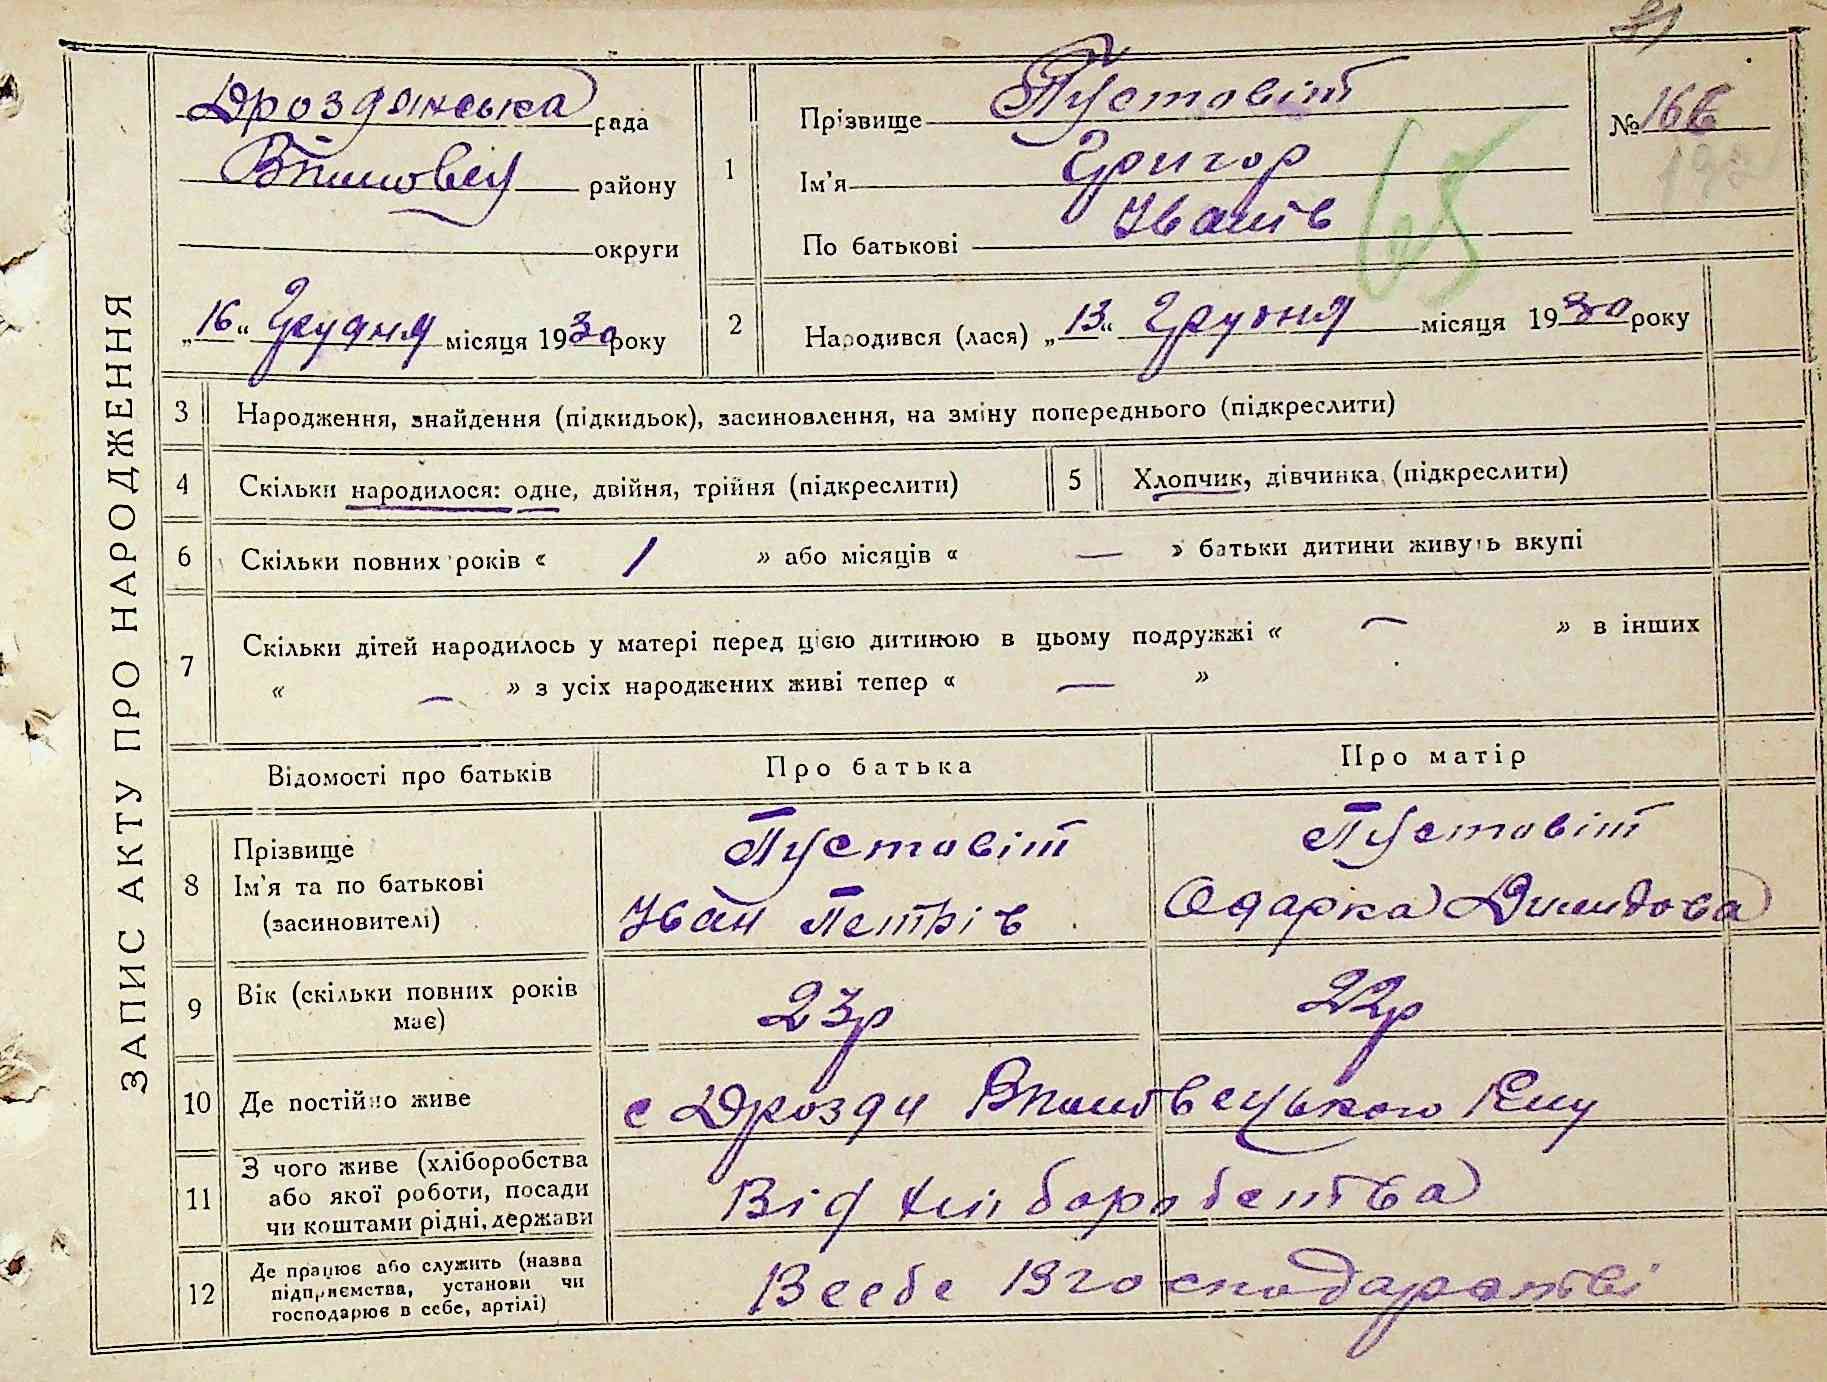 ЗАПИС АКТУ ПРО НАРОДЖЕННЯ
Дроздянська рада
району
округи
„16“ Грудня місяця 1930 року
1
Прізвище Пустовіт
Ім'я Григор
По батькові Іванів
№ 166
65
2
Народився (лася) „13“ Грудня місяця 1930 року
3 Народження, знайдення (підкидьок), засиновлення, на зміну попереднього (підкреслити)
4 Скільки народилося: одне, двійня, трійня (підкреслити)
5 Хлопчик, дівчинка (підкреслити)
6 Скільки повних років « 1 » або місяців « — » батьки дитини живуть вкупі
7 Скільки дітей народилось у матері перед цією дитиною в цьому подружжі « — » в інших
« — » з усіх народжених живі тепер « — »
Відомості про батьків Про батька Про матір
8
Прізвище Пустовіт Пустовіт
Ім'я та по батькові Іван Петрів Одарка
(засиновителі)
9 Вік (скільки повних років має) 23р 22р
10 Де постійно живе с Дрозди
11 З чого живе (хліборобства
або якої роботи, посади
чи коштами рідні, держави
Від хліборобства
12 Де працює або служить (назва
підприємства, установи чи
господарює в себе, артілі)
В себе в господарстві